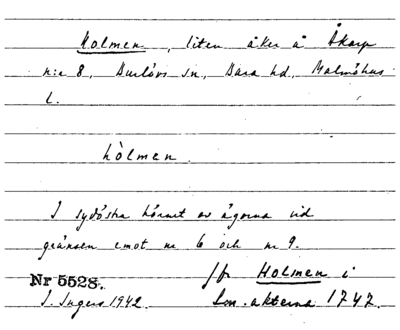 Holmen, liten åker å Åkarp
n:o 8, Burlövs sn, Bara hd, Malmöhus
l.
hòlmen.
I sydöstra hörnet av ägorna vid
gränsen emot nr 6 och nr 9.
Nr 5528. jfr Holmen i
I. Ingers 1942. Lm.-akterna 1747.